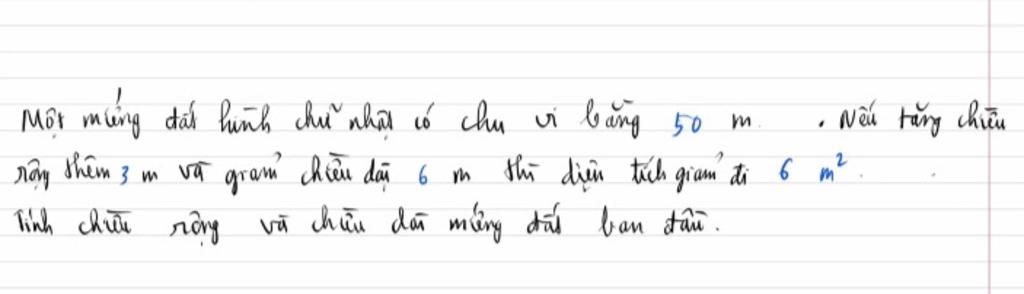 Một miếng đất hình chữ nhật có chu vi bằng 50 m . Nếu tăng chiều
rộng thêm 3 m và giảm chiều dài 6 m thì diện tích giảm đi 6 m².
Tính chiều rộng và chiều dài miếng đất ban đầu.